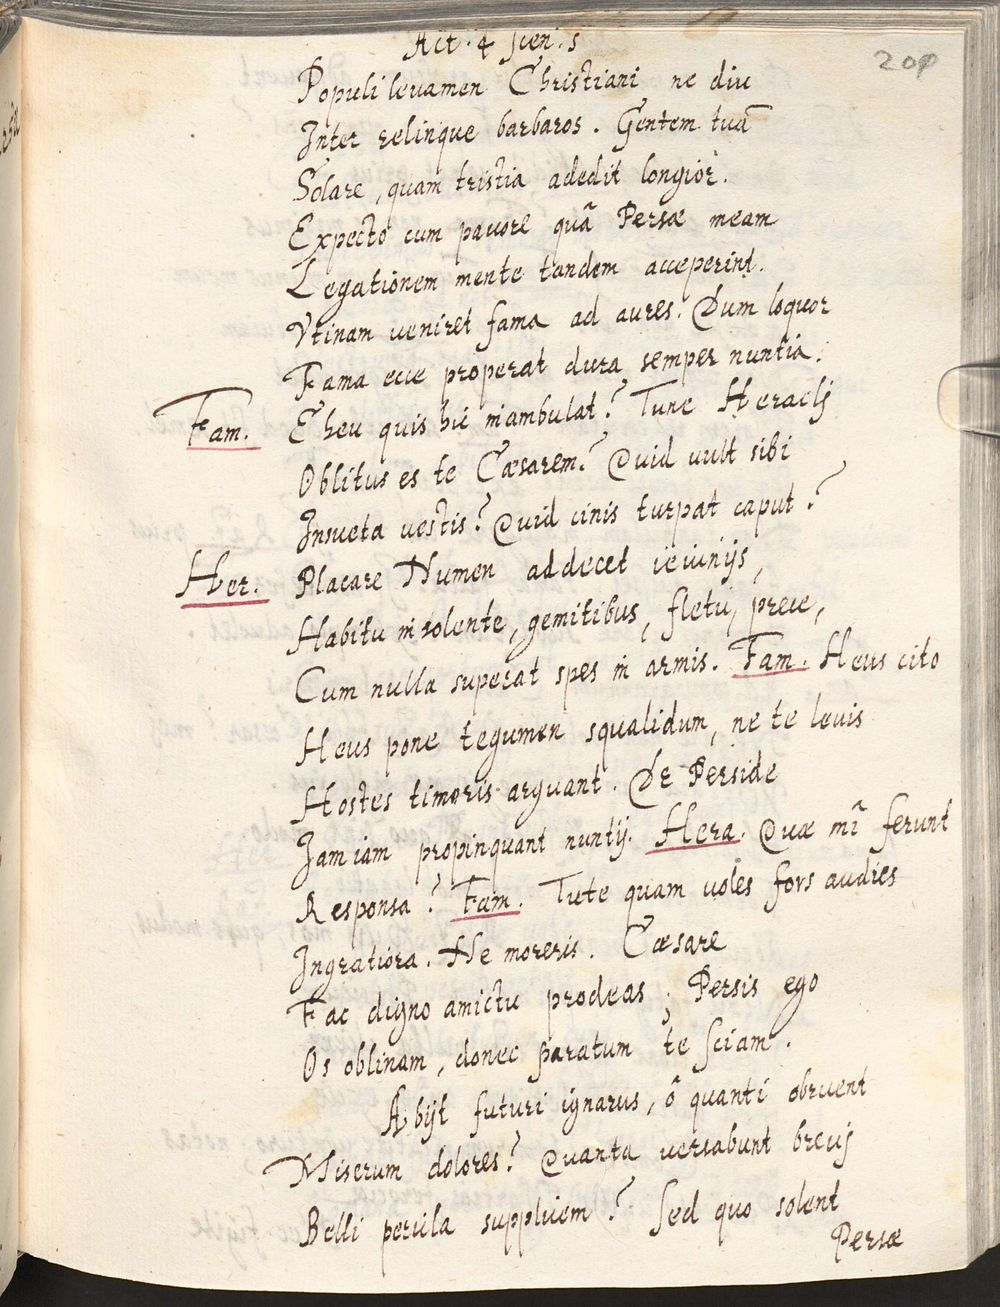 Act. 4 Scen. 5
209
Populi leuamen Christiani ne diu
Inter relinque barbaros. Gentem tuã
Solare, quam tristia adedit longior.
Expecto cum pauore quã Persæ meam
Legationem mente tandem acceperint.
Vtinam ueniret fama ad aures. Dum loquor
Fama ecce properat dura semper nuntia.
Fam. Eheu quis hic inambulat? Tune Heraclj
Oblitus es te Cæsarem? Quid uult sibi
Insueta uestis? Quid cinis turpat caput?
Her. Placare Numen addecet ieiunijs,
Habitu insolente, gemitibus, fletu, prece,
Cum nulla superat spes in armis. Fam. Heus cito
Heus pone tegumen squalidum, ne te leuis
Hostes timoris arguant. De Perside
Jam iam propinquant nuntij. Hera. Quæ mĩ ferunt
Responsa? Fam. Tute quam uoles fors audies
Ingratiora. Ne moreris. Cæsare
Fac digno amictu prodeas; Persis ego
Os oblinam, donec paratum te sciam.
Abijt futuri ignarus, ô quanti obruent
Miserum dolores? Quanta uersabunt breuj
Belli pericla supplicem? Sed quo solent
Persæ